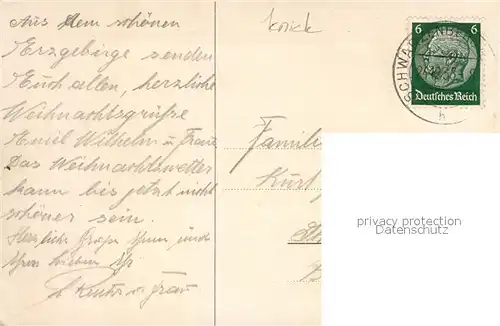 Aus dem schönen
Erzgebirge senden
Euch allen, herzliche
Weihnachtsgrüße
Emil Wilhelm u. Frau
Das Weihnachtswetter
kann bis jetzt nicht
schöner sein.
Herzliche Grüße Ihnen und
Ihren lieben
u Frau
knick
6 6
Deutsches Reich
SCHWARZENBERG
h
Familie
Kurt
privacy protection
Datenschutz